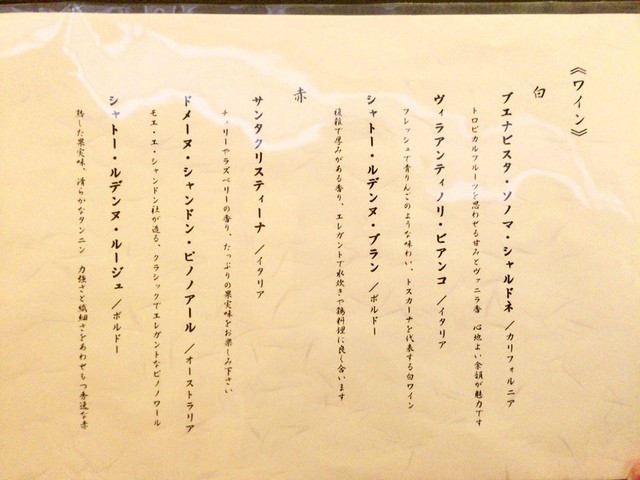 《ワイン》
白
ブエナビスタ・ソノマ・シャルドネ／カリフォルニア
トロピカルフルーツを思わせる甘みとヴァニラ香 心地よい余韻が魅力です
ヴィラアンティノリ・ビアンコ／イタリア
フレッシュで青りんごのような味わい、トスカーナを代表する白ワイン
シャトー・ルデンヌ・ブラン／ボルドー
複雑で厚みがある香り、エレガントで水炊きや鶏料理に良く合います
赤
サンタクリスティーナ／イタリア
チェリーやラズベリーの香り、たっぷりの果実味をお楽しみ下さい
ドメーヌ・シャンドン・ピノノアール／オーストラリア
モエ・エ・シャンドン社が造る、クラシックでエレガントなピノノワール
シャトー・ルデンヌ・ルージュ／ボルドー
熟した果実味、滑らかなタンニン 力強さと繊細さをあわせもつ秀逸な赤